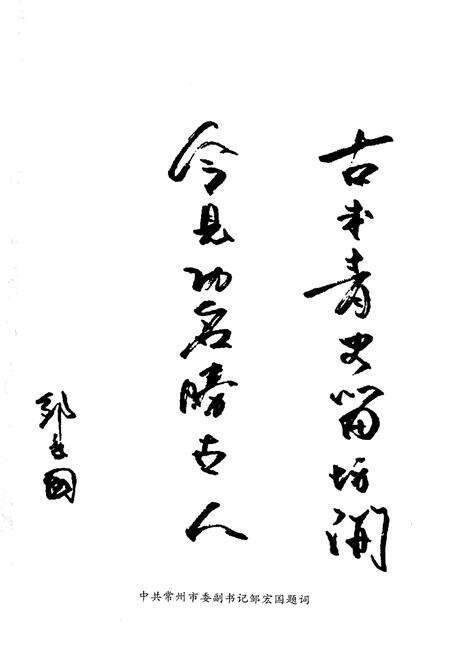 古来青史留坊
今見功名勝古人
邹宏国
中共常州市委副书记邹宏国题词